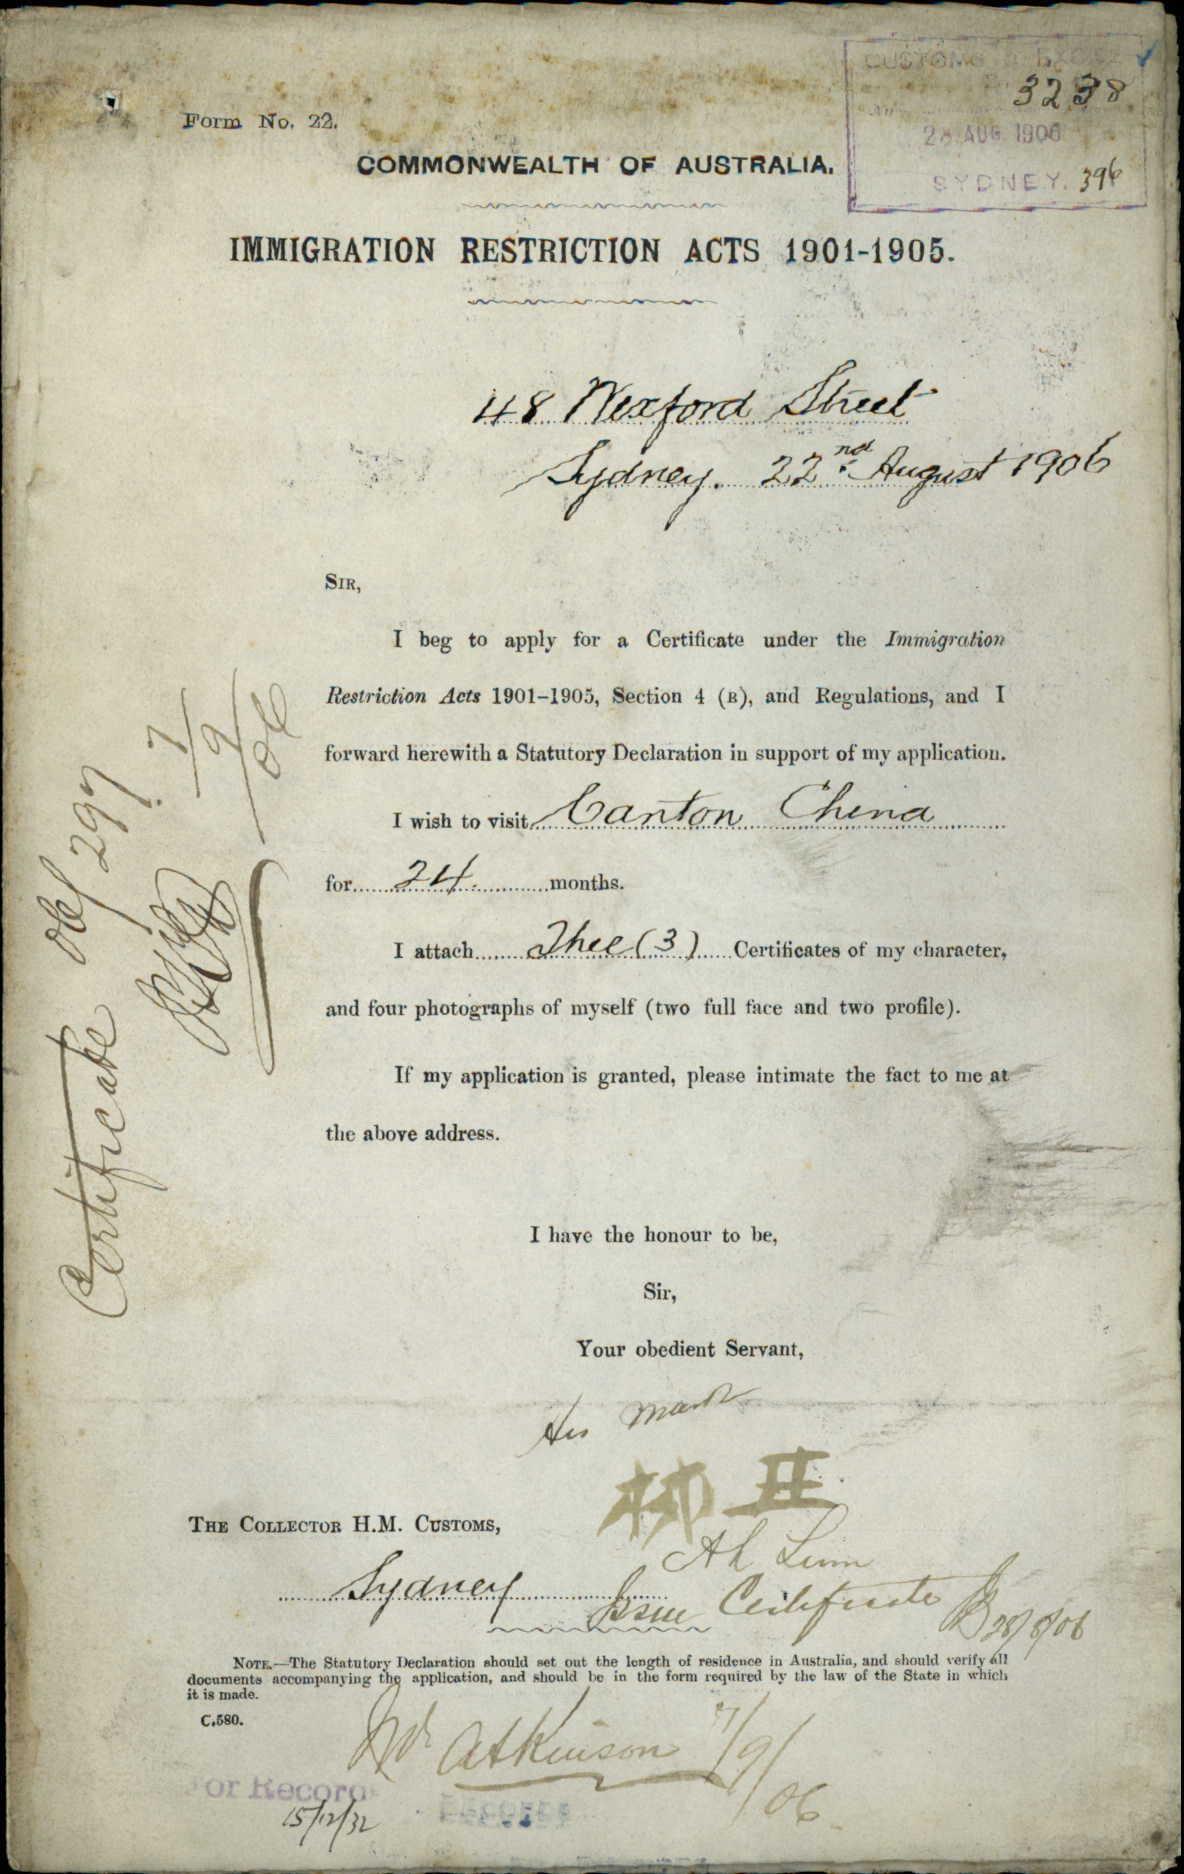 CUSTOMS & EXCISE
3238
28 AUG 1906
SYDNEY. 396
Form No. 22.
COMMONWEALTH OF AUSTRALIA.
IMMIGRATION RESTRICTION ACTS 1901-1905.
48 Wexford Street
Sydney. 22nd August 1906
SIR,
I beg to apply for a Certificate under the Immigration
Restriction Acts 1901-1905, Section 4 (B), and Regulations, and I
forward herewith a Statutory Declaration in support of my application.
I wish to visit Canton China
for 24 months.
I attach Thee (3) Certificates of my character,
and four photographs of myself (two full face and two profile).
If my application is granted, please intimate the fact to me at
the above address.
I have the honour to be,
Sir,
Your obedient Servant,
His mark
Ah Lum
THE COLLECTOR H.M. CUSTOMS,
Sydney
Issue Certificate 28/8/06
NOTE.—The Statutory Declaration should set out the length of residence in Australia, and should verify all
documents accompanying the application, and should be in the form required by the law of the State in which
it is made.
C.580.
Mr Atkinson 7/9/06
For Record
15/12/32
RECORDS
Certificate 06/297
7/9/06